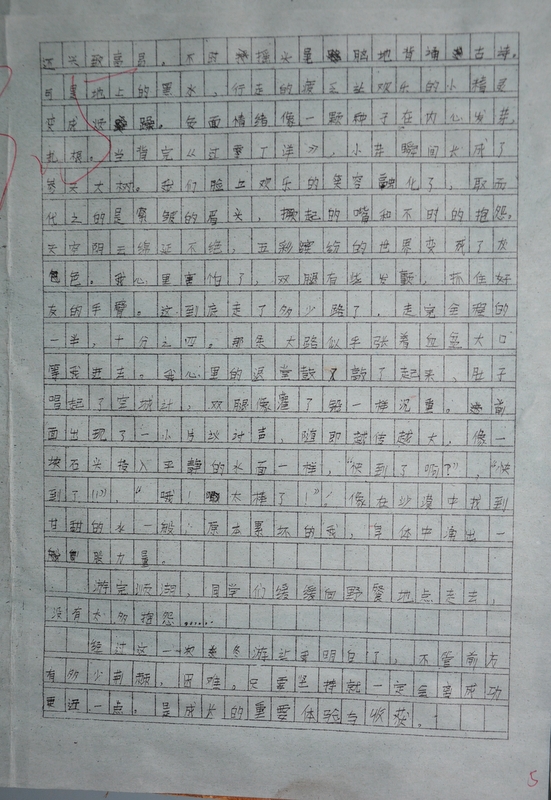 还兴致高昂。不时摇头晃脑地背诵古诗。
地上的黑水，行走的疲乏让欢乐的小精灵
变成烦躁。负面情绪像一颗种子在内心发芽，
扎根。当背完《过零丁洋》，小芽瞬间长成了
参天大树。我们脸上欢乐的笑容融化了，取而
代之的是紧皱的眉头，撅起的嘴和不时的抱怨，
天空阴云绵延不绝，五彩缤纷的世界变成了灰
色。我心里害怕了，双腿有些发颤，抓住好
友的手臂。这到底走了多少路了，走完全程的
一半，十分之四。那条大路似乎张着血盆大口
等我进去。我心里的退堂鼓又敲了起来，肚子
唱起了空城计，双腿像灌了铅一样沉重。前
面出现了一小片议讨声，随即越传越大，像一
块石头投入平静的水面一样，“快到了啊？”，“快
到了！！”，“哦！太棒了！”！像在沙漠中找到
甘甜的水一般，原本累坏的我，身体中涌出一
股力量。
游完顺湖，同学们缓缓向野餐地点走去，
没有太多抱怨……
经过这一次冬游让我明白了，不管前方
有多少荆棘，困难。只要坚持就一定会离成功
更近一点。是成长的重要体验与收获。
5